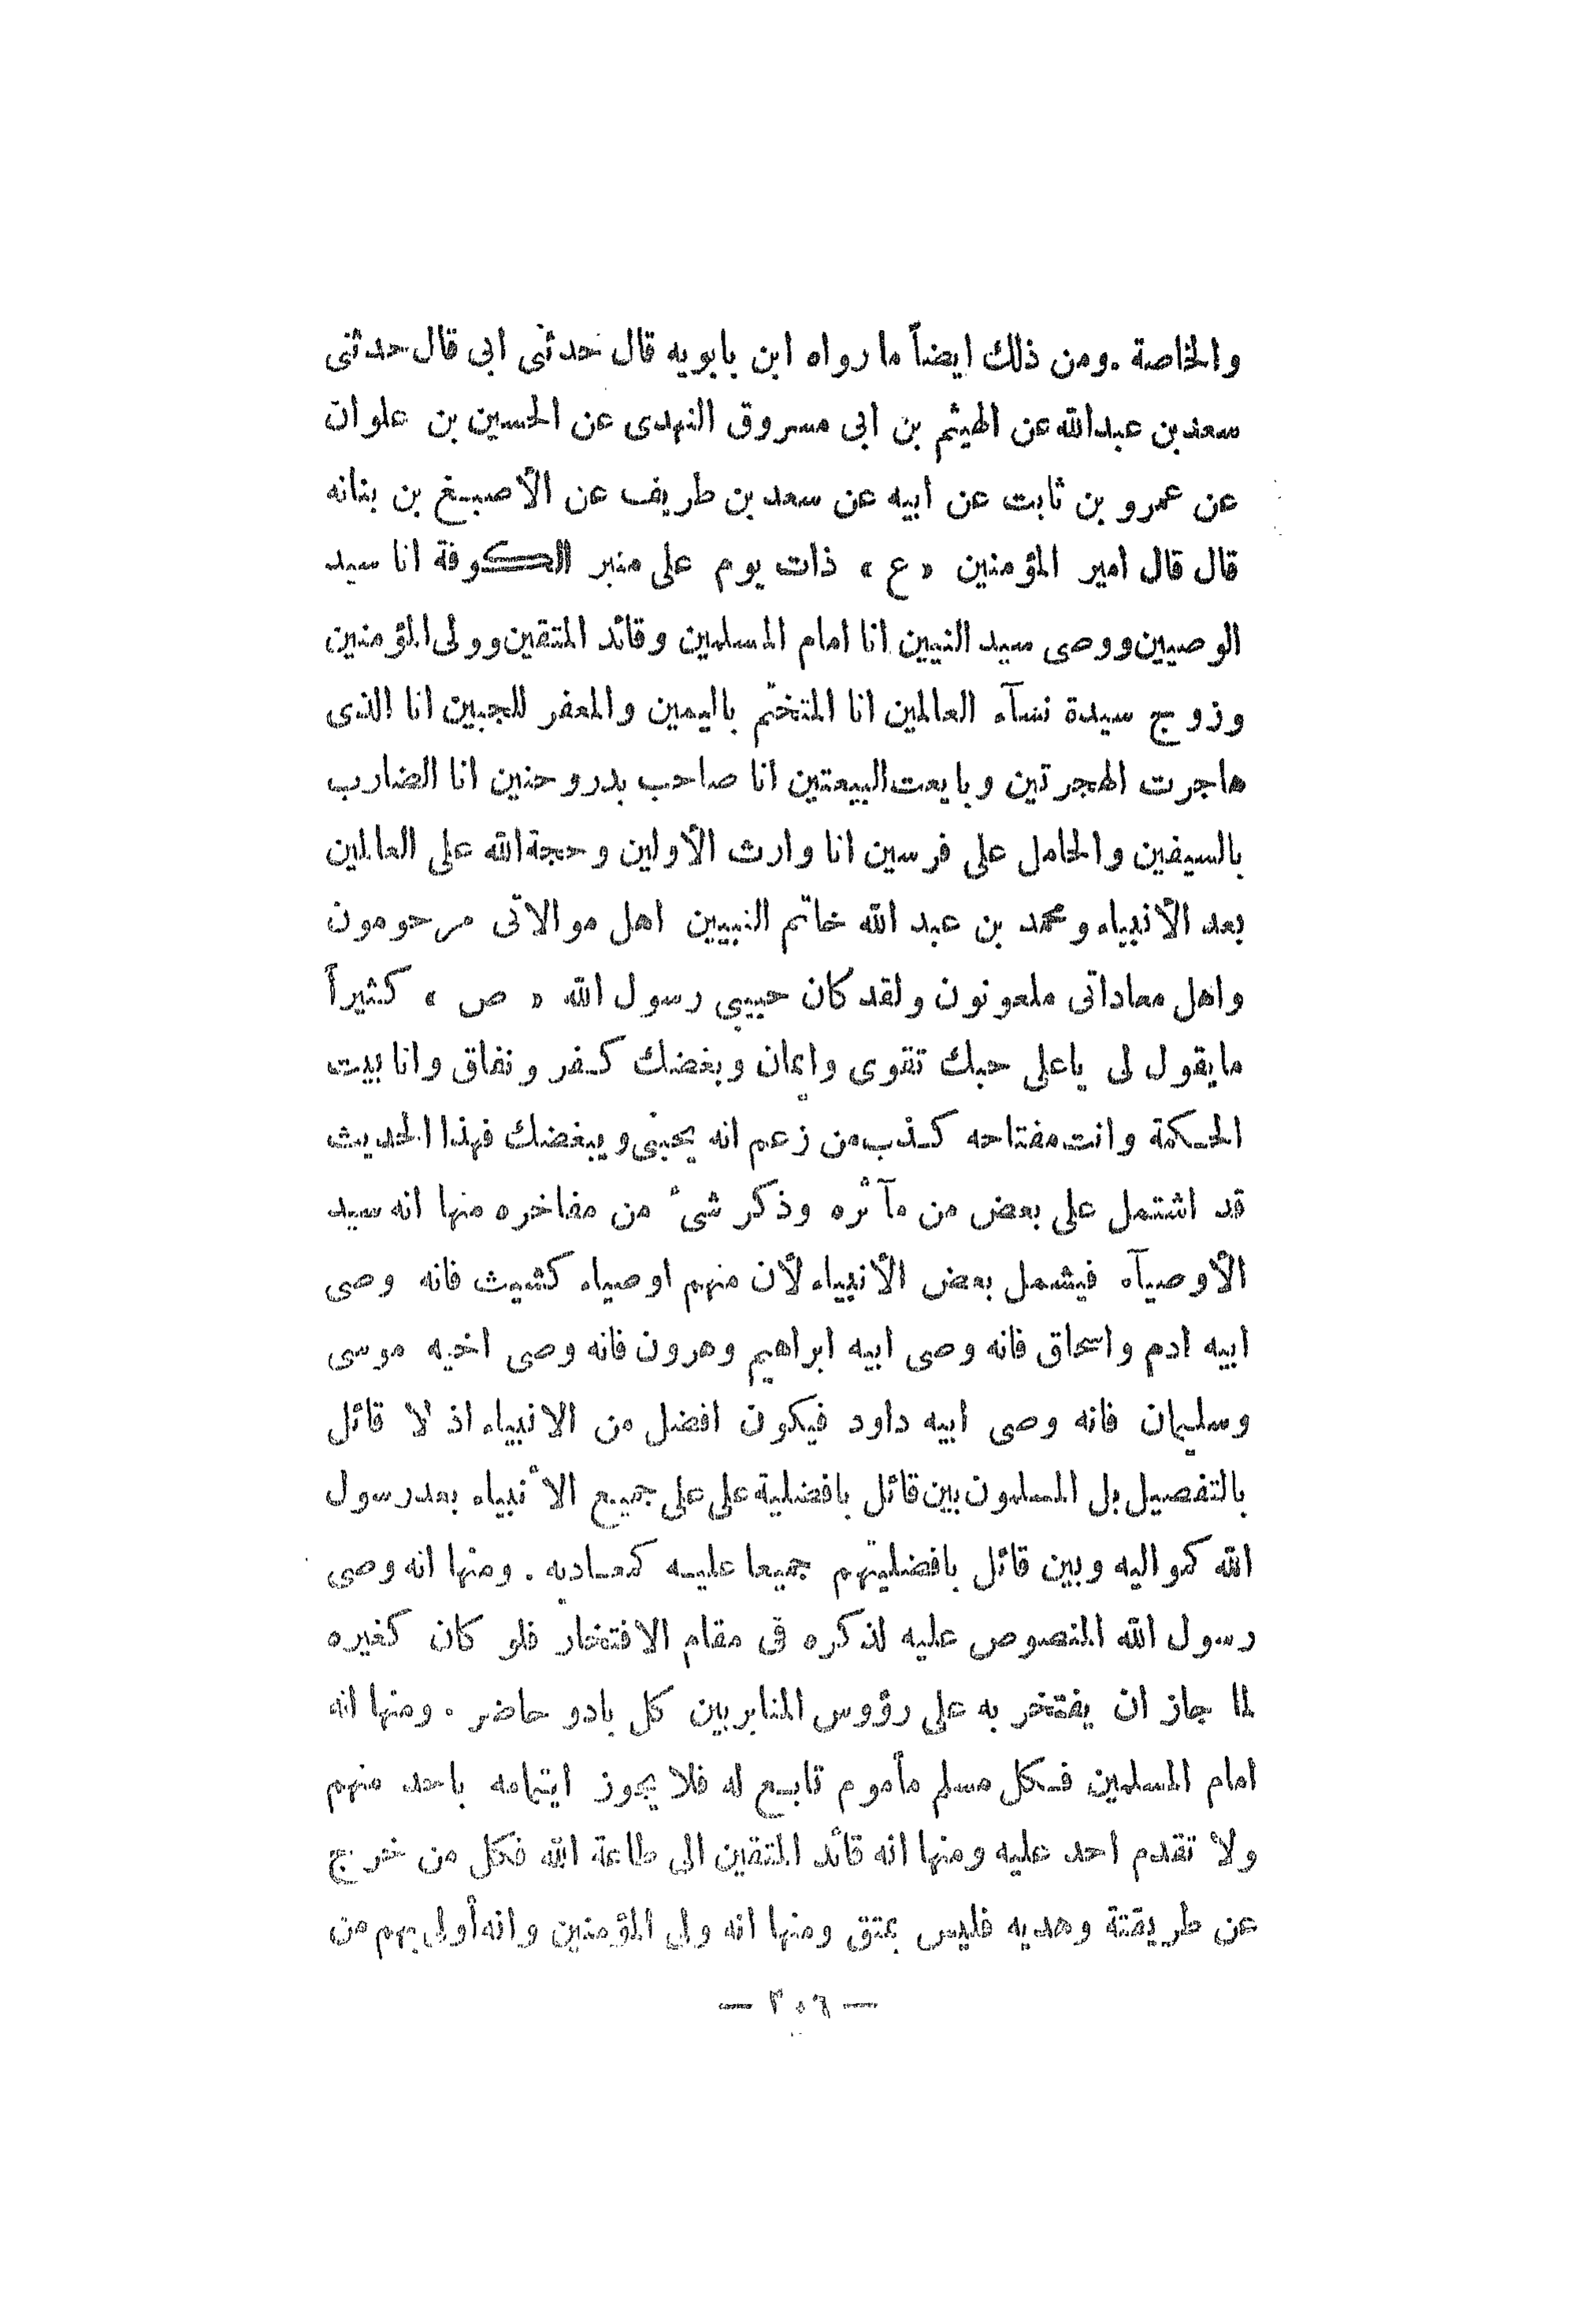 والخاصة . ومن ذلك ايضاً ما رواه ابن بابويه قال حدثنى ابى قال حدثنى
سعد بن عبدالله عن الهيثم بن ابى مسروق النهدى عن الحسين بن علوان
عن عمرو بن ثابت عن ابيه عن سعد بن طريف عن الأصبغ بن بنانه
قال قال امير المؤمنين « ع » ذات يوم على منبر الكوفة انا سيد
الوصيين ووصى سيد النبيين انا امام المسلمين وقائد المتقين وولى المؤمنين
وزوج سيدة نسآء العالمين انا المتختّم باليمين والمعفر للجبين انا الذى
هاجرت الهجرتين وبايعت البيعتين انا صاحب بدر وحنين انا الضارب
بالسيفين والحامل على فرسين انا وارث الأولين وحجة الله على العالمين
بعد الأنبياء ومحمد بن عبد الله خاتم النبيين اهل موالاتى مرحومون
واهل معاداتى ملعونون ولقد كان حبيبى رسول الله « ص » كثيراً
ما يقول لى ياعلى حبك تقوى وايمان وبغضك كفر ونفاق وانا بيت
الحكمة وانت مفتاحه كذب من زعم انه يحبنى ويبغضك فهذا الحديث
قد اشتمل على بعض من مآثره وذكر شىء من مفاخره منها انه سيد
الأوصيآء فيشمل بعض الأنبياء لأن منهم اوصياء كشيث فانه وصى
ابيه ادم واسحاق فانه وصى ابيه ابراهيم وهرون فانه وصى اخيه موسى
وسليمان فانه وصى ابيه داود فيكون افضل من الانبياء اذ لا قائل
بالتفصيل بل المسلمون بين قائل بافضلية على على جميع الأنبياء بعد رسول
الله كمواليه وبين قائل بافضليتهم جميعا عليه كمعاديه . ومنها انه وصى
رسول الله المنصوص عليه لذكره فى مقام الافتخار فلو كان كغيره
لما جاز ان يفتخر به على رؤوس المنابر بين كل بادو حاضر . ومنها انه
امام المسلمين فكل مسلم مأموم تابع له فلا يجوز ايتمامه باحد منهم
ولا تقدم احد عليه ومنها انه قائد المتقين الى طاعة الله فكل من خرج
عن طريقتة وهديه فليس بمتق ومنها انه ولى المؤمنين وانه أولى بهم من
— ٢٠٦ —